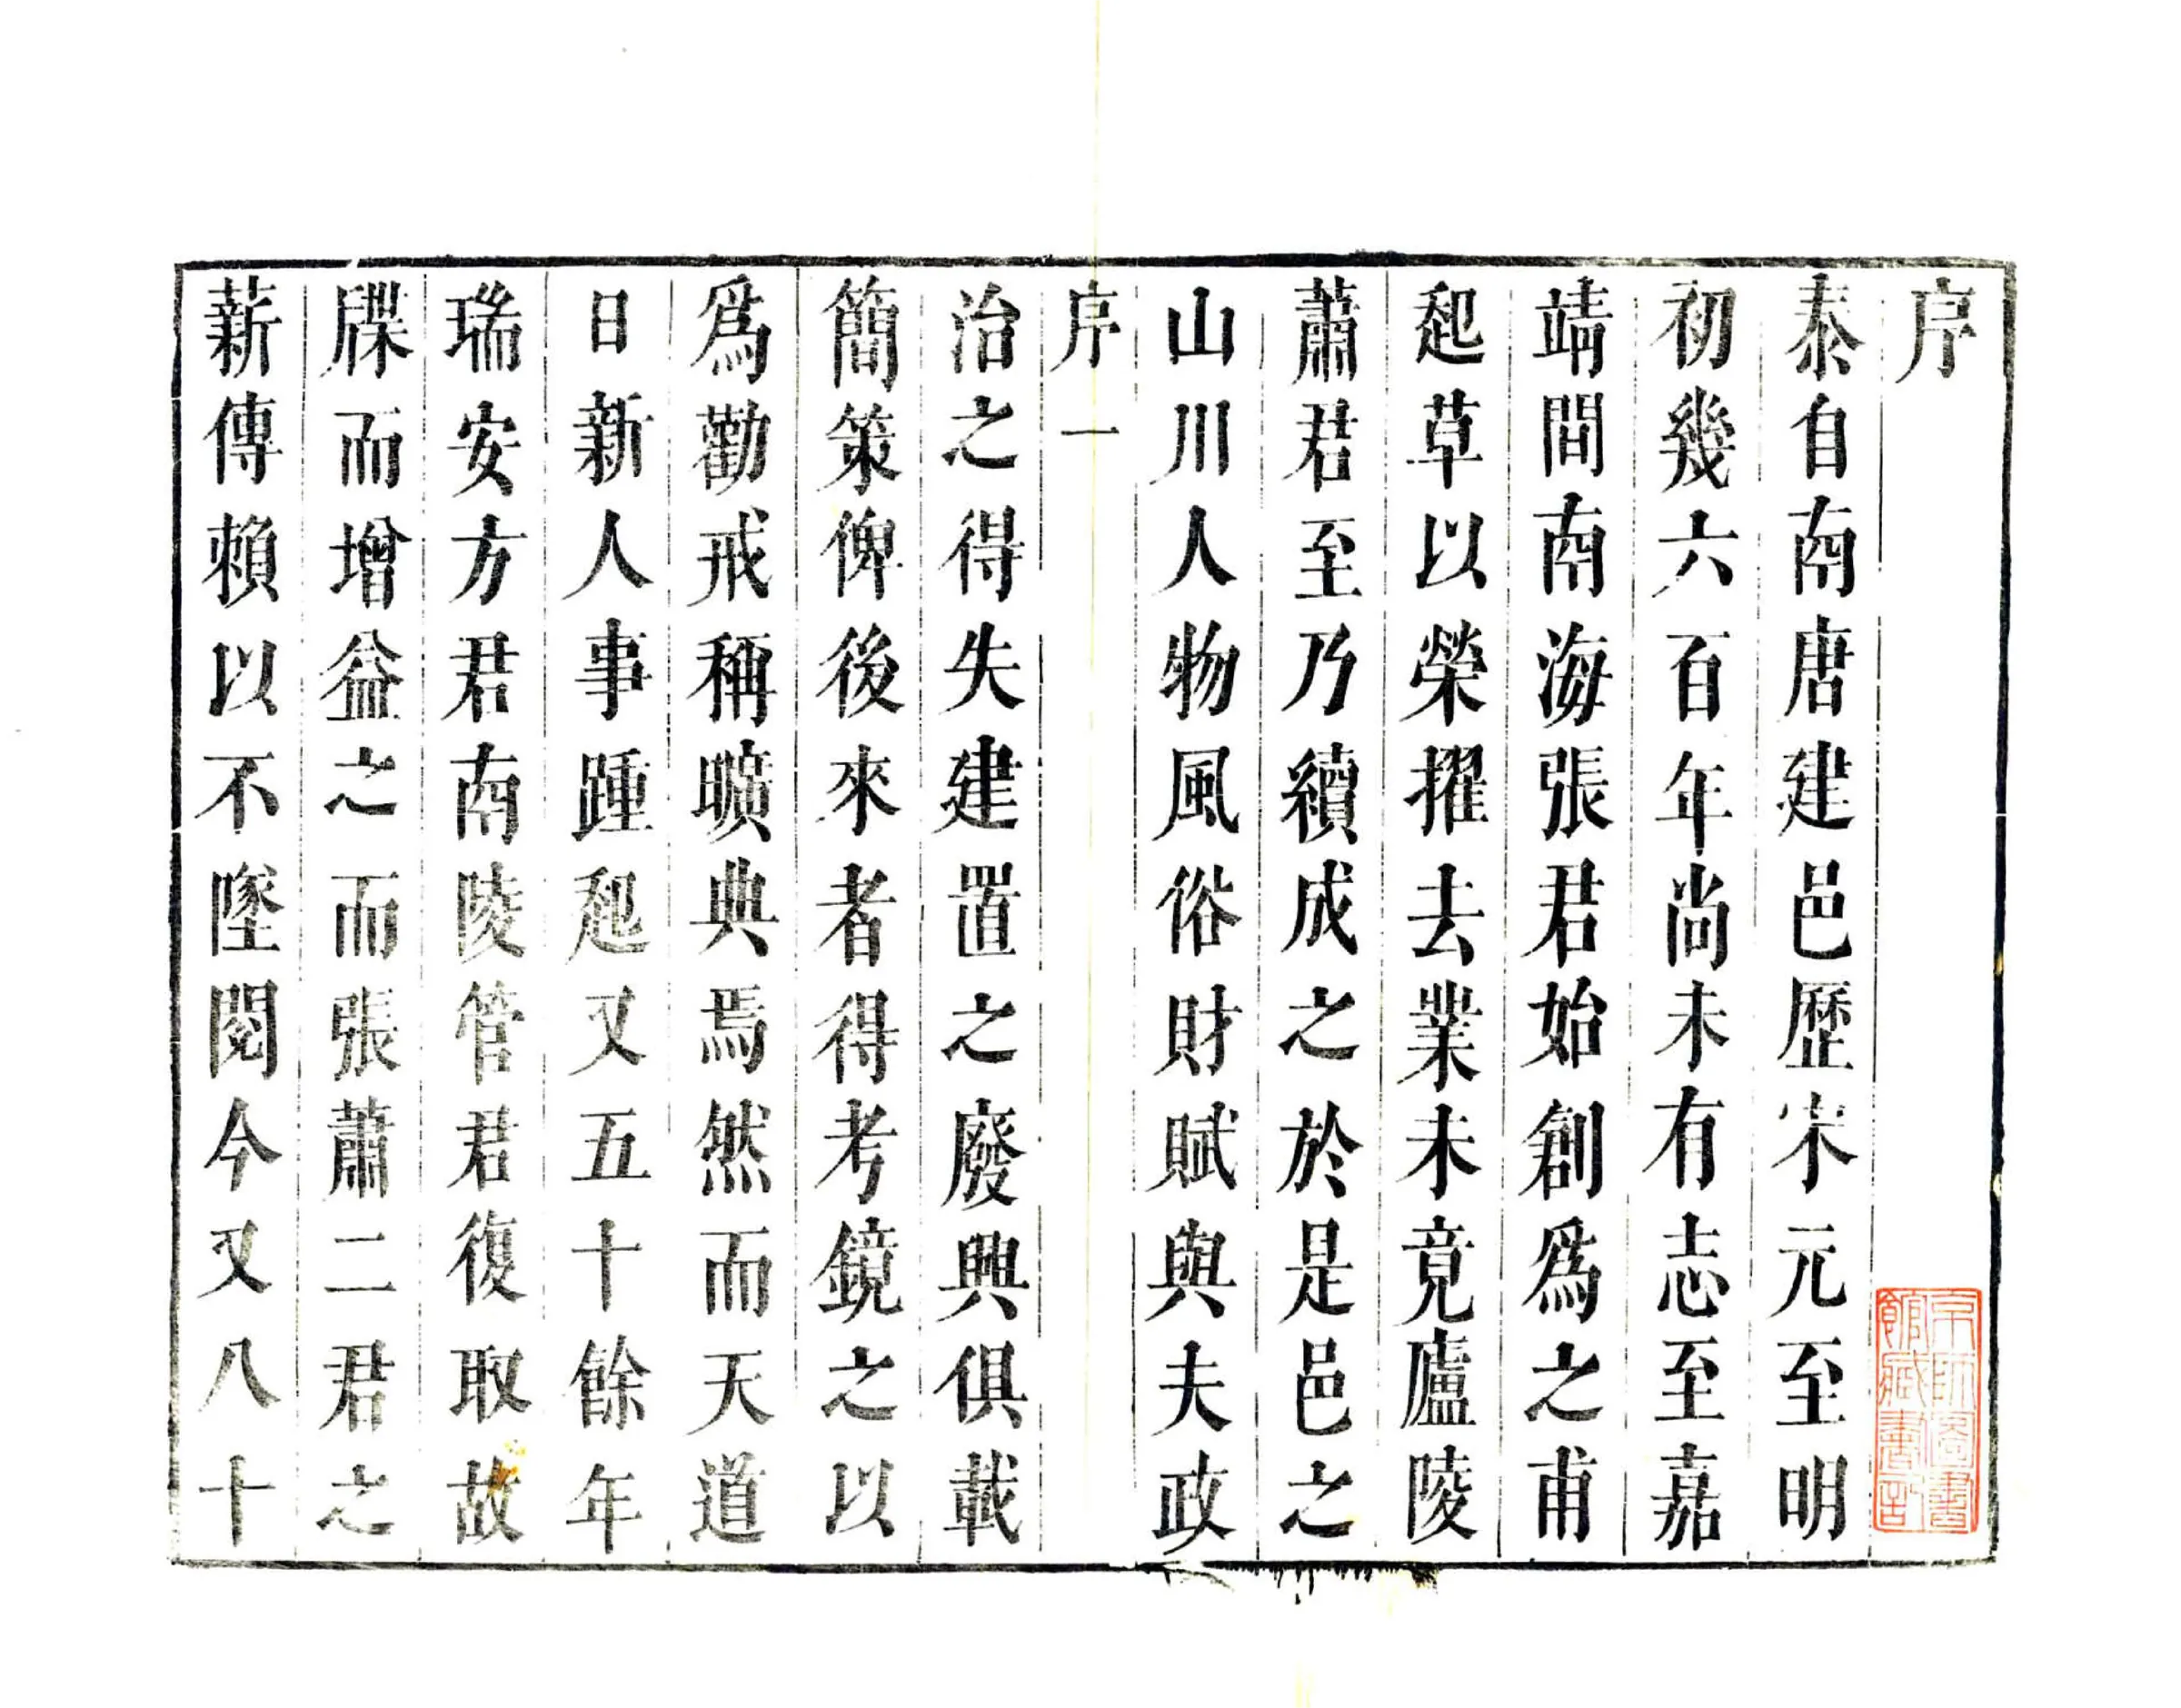 序
泰自南唐建邑歷宋元至明
初幾六百年尚未有志至嘉
靖間南海張君始創爲之甫
起草以榮擢去業未竟廬陵
蕭君至乃續成之於是邑之
山川人物風俗財賦與夫政
序一
治之得失建置之廢興俱載
簡策俾後來者得考鏡之以
爲勸戒稱曠典焉然而天道
日新人事踵起又五十餘年
瑞安方君南陵管君復取故
牒而增益之而張蕭二君之
薪傳賴以不墜閱今又八十
京師圖書
館藏書記